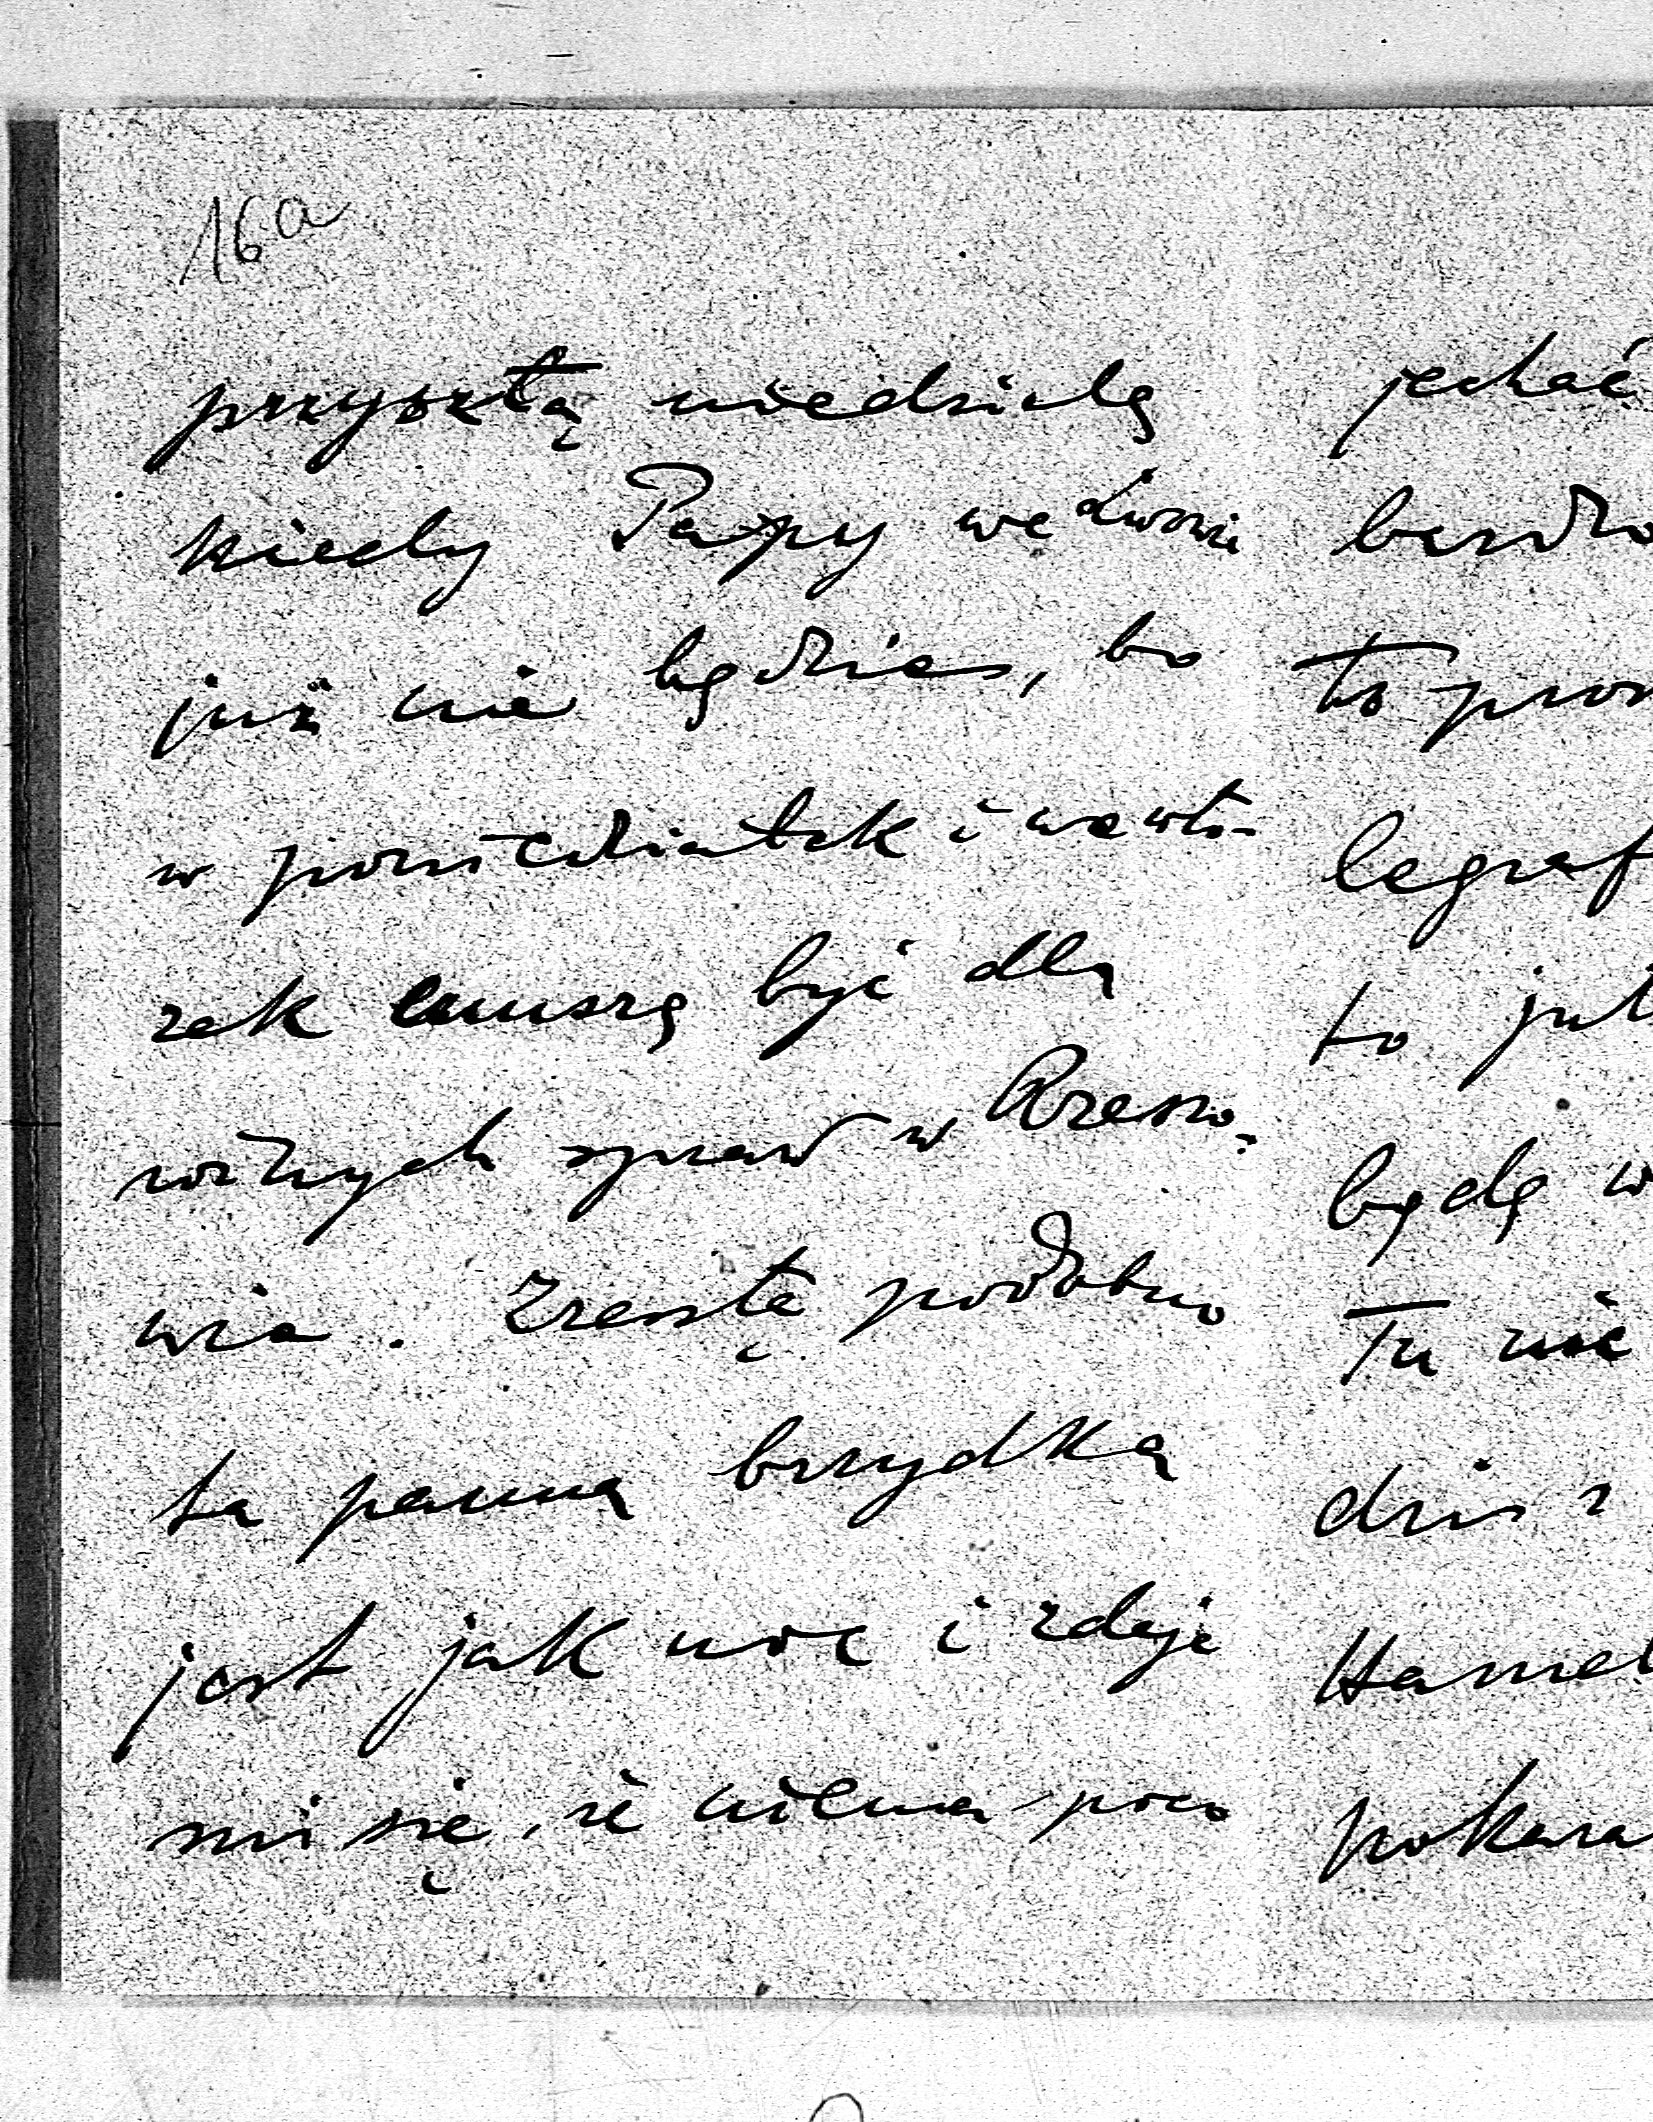 16a
przyszłą niedzielę
kiedy Papy we Lwowie
już nie będzie, bo
w poniedziałek i we wto-
rek muszę być dla
rożnych spraw w Rzeszo-
wie. Zresztą podobno
ta panna brzydka
jest jak noc i zdaje
mi się, że niema poco
jechać
bardzo
to pros
legraf
to jut
będę w
Tu nie
dziś z
Hamel
pokaza